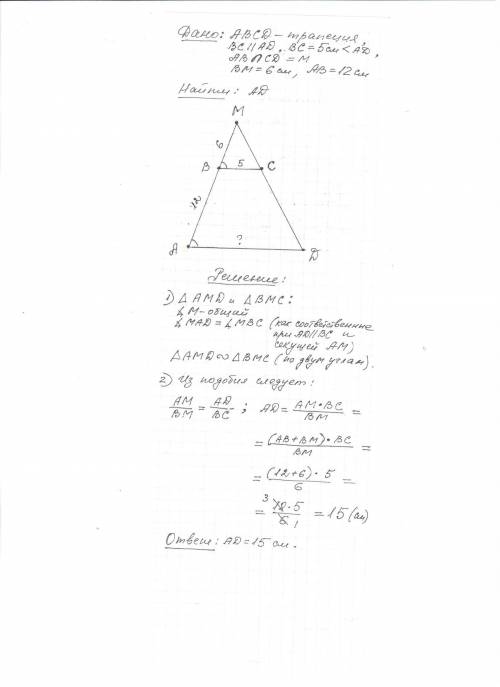 Дано: ABCD – трапеция,
BC || AD, BC = 5 см < AD,
AB ∩ CD = M
BM = 6 см, AB = 12 см
Найти: AD
M
6
B 5 C
12
A ? D
Решение:
1) △ AMD и △ BMC:
∡ M - общий
∡ MAD = ∡ MBC (как соответственные
при AD || BC и
секущей AM)
△ AMD ∞ △ BMC (по двум углам).
2) Из подобия следует:
AM/BM = AD/BC ; AD = AM • BC / BM =
= (AB + BM) • BC / BM =
= (12 + 6) • 5 / 6 =
= 3 18 • 5 / 6 1 = 15 (см)
Ответ: AD = 15 см.